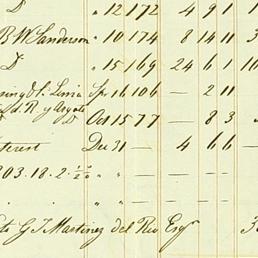 D " 12 172 4 9 1
B W Sanderson " 10 174 8 14 11 3
D " 15 169 24 6 1 10
Sp. 16 106 — 2 11
D Oct 15 77 — 8 3
terest Dec 31 — 4 6 6 —
203.18.2
G J Martinez del Rio Esqr 3